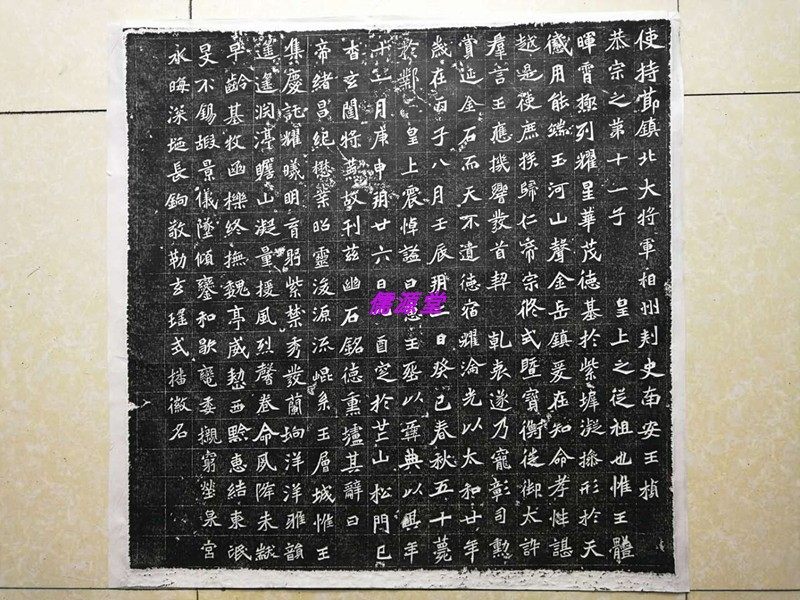 使持節鎮北大將軍相州刾史南安王楨
恭宗之第十一子　皇上之從祖也惟王體
暉霄極列耀星華茂德基於紫墀凝操形於天
儀用能端玉河山聲金岳鎮爰在知命孝性諶
越是使庶族歸仁帝宗攸式暨寶衡徙御太訐
羣言王應機響發首契　乾衷遂乃寵彰司勳
賞延金石而天不遺德宿耀淪光以太和廿年
歲在丙子八月壬辰朔二日癸巳春秋五十薨
於鄴　皇上震悼諡曰惠王葬以彝典以其年
十一月庚申朔廿六日酉窆於芒山松門已
杳玄闥將蕪故刊茲幽石銘德熏壚其辭曰
帝緒昌紀懋業昭靈浚源流崐系玉層城惟王
集慶託耀曦明育躬紫禁秀發蘭坰洋洋雅韻
遙遙淵渟瞻山凝量援風烈馨卷命夙降未黻
早齡基牧函櫟終撫魏亭威整西黔惠結東氓
旻不錫嘏景儀墜傾鑾和歇轡委櫬窮塋泉宮
永晦深埏長扃敬勒玄瑤式播徽名
儒源堂